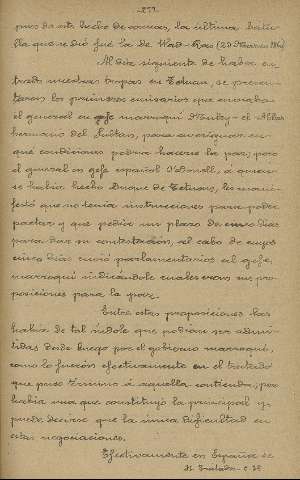 pues de este hecho de armas, la última batalla
lla que se dió fué la de Wad-Ras (23 Marzo 1860)
Al día siguiente de haber en-
trado nuestras tropas en Tetuan, se presen-
taron los primeros emisarios que enviaba
el general en gefe marroquí Muley-el-Abbas
hermano del Sultan, para averiguar en
qué condiciones podría hacerse la paz; pero
el general en gefe español O'Donell, á quien
se había hecho Duque de Tetuan, les mani-
festó que no tenía instrucciones para poder
pactar y que pedía un plazo de cinco días
para dar su contestación, al cabo de cuyos
cinco días envió parlamentarios al gefe
marroquí indicándole cuales eran sus pro-
posiciones para la paz.
Entre estas proposiciones las
había de tal índole que podían ser admi-
tidas desde luego por el gobierno marroquí,
como lo fueron efectivamente en el tratado
que puso término á aquella contienda; pero
había una que constituyó la principal y
puede decirse que la única dificultad en
estas negociaciones.
Efectivamente en España se